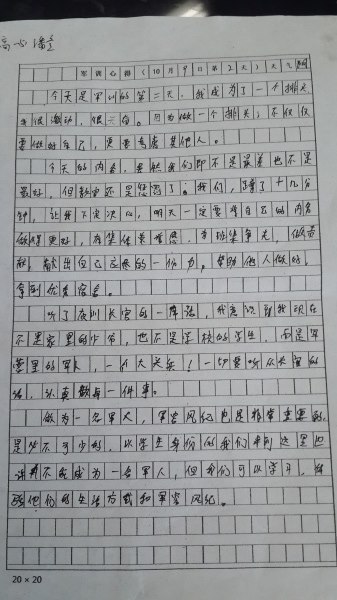 军训心得(10月9日第2天)天气
今天是军训的第二天,我成为了一个排头,
我很激动,很兴奋。因为做一个排头,不仅仅
要做好自己,还要考虑其他人。
今天的内务,虽然我们即不是最差也不是
最好,但教官还是惩罚了我们,了十几分
钟,让我下定决心,明天一定要将自己的内务
做得更好,为集体,为班集争光,做贡
献,献出自己应有的一份力。帮助他人做好,
拿到优秀宿舍。
听了夜训长官的一阵话,我意识到我现在
不是家里的少爷,也不是学校的学生,而是军
营里的军人,一个大头兵!一切要听从长官的
话,认真做每一件事。
做为一名军人,军容风纪也是非常重要的,
是必不可少的,以学生身份的我们来到这里也
许不能成为一名军人,但我们可以学习,
他们的生活方式和军容风纪。
20×20